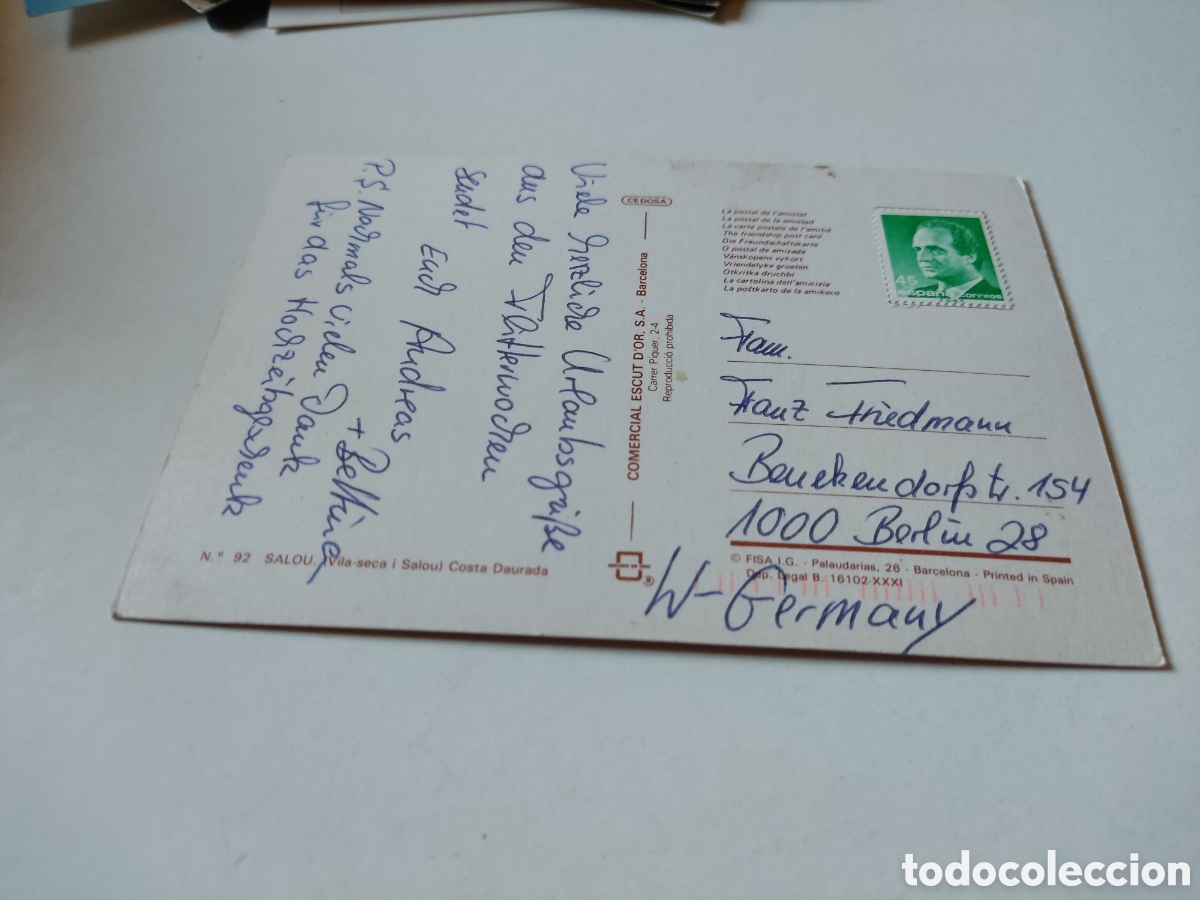 Viele herzliche Urlaubsgrüße
aus den Flitterwochen
sendet
Euch Andreas
+ Bettina
P.S. Nochmals vielen Dank
für das Hochzeitsgeschenk
N.º 92 SALOU. (Vila-seca i Salou) Costa Daurada
CEDOSA
COMERCIAL ESCUT D'OR, S.A. - Barcelona
Carrer Piquer, 2-4
Reproducció prohibida
La postal de l'amistat
La postal de la amistad
La carte postale de l'amitié
The friendship post card
Die Freundschaftskarte
O postal de amizade
Vänskapens vykort
Vriendelyke groeten
Otkritka druchbi
La cartolina dell'amicizia
La poŝtkarto de la amikeco
45
España correos
Fam.
Franz Friedmann
Benekendorfstr. 154
1000 Berlin 28
W-Germany
© FISA I.G. - Palaudarias, 26 - Barcelona - Printed in Spain
Dep. Legal B. 16102-XXXI
todocoleccion